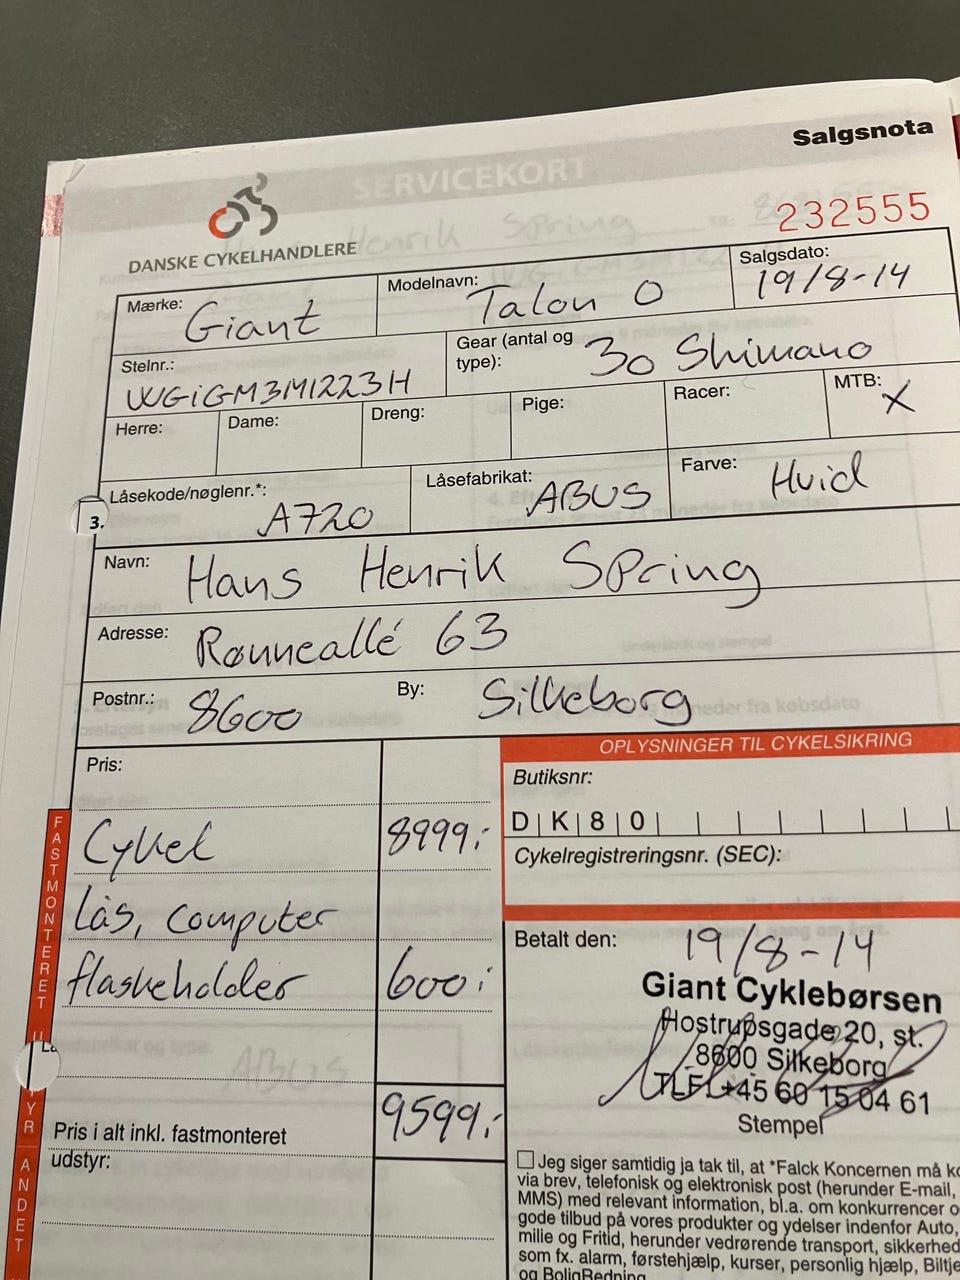 Salgsnota
SERVICEKORT
232555
DANSKE CYKELHANDLERE
Mærke: Giant
Modelnavn: Talon 0
Salgsdato: 19/8-14
Stelnr.: WGiGM3M1223H
Gear (antal og type): 30 Shimano
Herre: Dame: Dreng: Pige: Racer: MTB: X
3.
Låsekode/nøglenr.*: A720
Låsefabrikat: ABUS
Farve: Hvid
Navn: Hans Henrik Spring
Adresse: Rønneallé 63
Postnr.: 8600 By: Silkeborg
Pris:
Cykel 8999,-
Lås, computer
flaskeholder 600,-
Pris i alt inkl. fastmonteret
udstyr: 9599,-
FASTMONTERET
OPLYSNINGER TIL CYKELSIKRING
Butiksnr:
D K 8 0
Cykelregistreringsnr. (SEC):
Betalt den: 19/8-14
Giant Cyklebørsen
Hostrupsgade 20, st.
8600 Silkeborg
TLF. +45 60 15 04 61
Stempel
Jeg siger samtidig ja tak til, at *Falck Koncernen må
via brev, telefonisk og elektronisk post (herunder E-mail,
MMS) med relevant information, bl.a. om konkurrencer
gode tilbud på vores produkter og ydelser indenfor Auto,
milie og Fritid, herunder vedrørende transport,
som fx. alarm, førstehjælp, kurser, personlig hjælp,
og BoligRedning